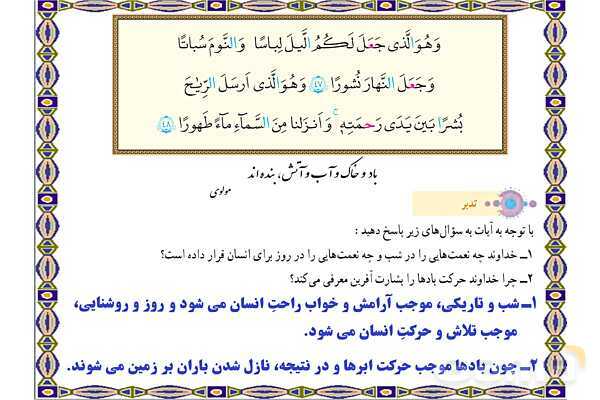 وَهُوَ الَّذی جَعَلَ لَکُمُ الَّیلَ لِباسًا وَ النَّومَ سُباتًا
وَ جَعَلَ النَّهارَ نُشورًا ﴿۴۷﴾ وَ هُوَ الَّذی اَرسَلَ الرِّیٰحَ
بُشرًا بَینَ یَدَی رَحمَتِهٖ ۚ وَ اَنزَلنا مِنَ السَّمآءِ مآءً طَهورًا ﴿۴۸﴾
باد و خاک و آب و آتش، بنده اند
مولوی
تدبر
با توجه به آیات به سؤال‌های زیر پاسخ دهید :
۱ــ خداوند چه نعمت‌هایی را در شب و چه نعمت‌هایی را در روز برای انسان قرار داده است؟
۲ــ چرا خداوند حرکت بادها را بشارت آفرین معرفی می‌کند؟
۱ــ شب و تاریکی، موجب آرامش و خواب راحتِ انسان می شود و روز و روشنایی،
موجب تلاش و حرکتِ انسان می شود.
۲ــ چون بادها موجب حرکت ابرها و در نتیجه، نازل شدن باران بر زمین می شوند.